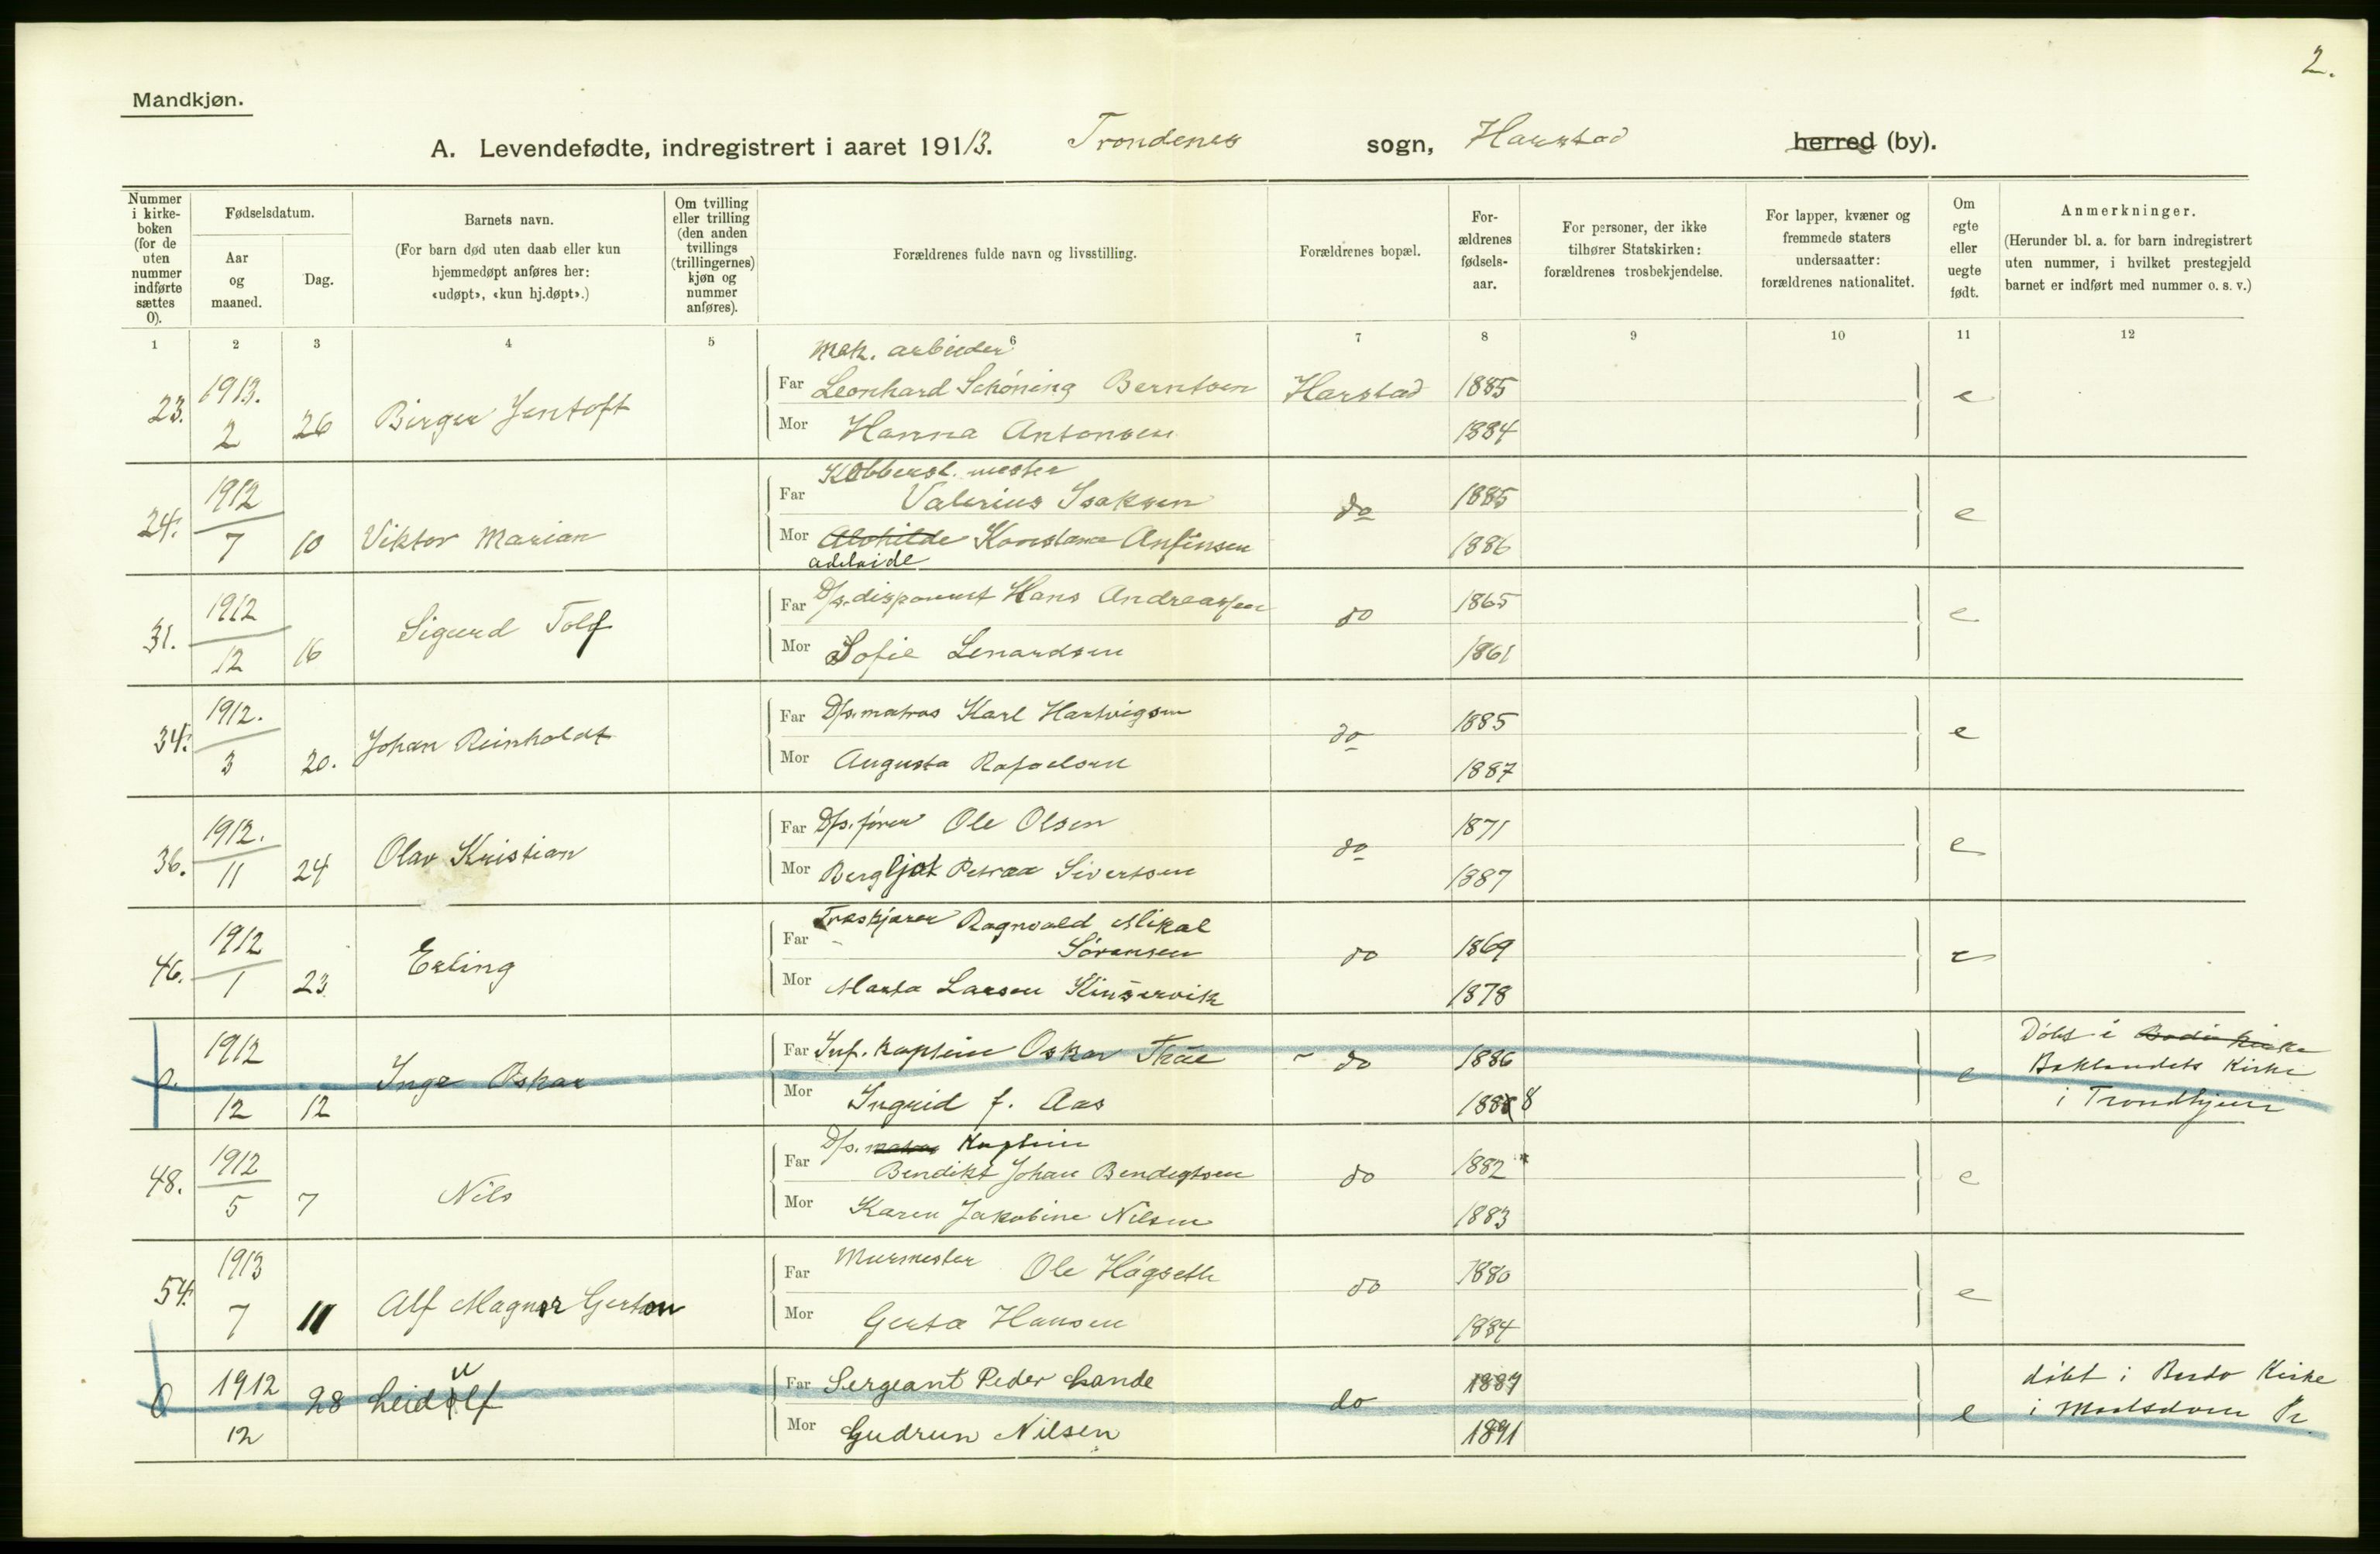 2.
Mandkjøn.
A. Levendefødte, indregistrert i aaret 1913. Trondenes sogn, Harstad herred (by).
Nummer i kirke-boken (for de uten nummer indførte sættes 0).
Fødselsdatum.
Aar og maaned.
Dag.
Barnets navn.
(For barn død uten daab eller kun hjemmedøpt anføres her: «udøpt», «kun hj.døpt».)
Om tvilling eller trilling (den anden tvillings (trillingernes) kjøn og nummer anføres).
Forældrenes fulde navn og livsstilling.
Forældrenes bopæl.
For-ældrenes fødsels-aar.
For personer, der ikke tilhører Statskirken: forældrenes trosbekjendelse.
For lapper, kvæner og fremmede staters undersaatter: forældrenes nationalitet.
Om egte eller uegte født.
Anmerkninger.
(Herunder bl. a. for barn indregistrert uten nummer, i hvilket prestegjeld barnet er indført med nummer o. s. v.)
1 2 3 4 5 6 7 8 9 10 11 12
Mek. arbeider
23. 1913. 2 26 Birger Jentoft
Far Leonhard Schöning Berntsen Harstad 1885 e
Mor Hanna Antonsen 1884
24. 1912 7 10 Viktor Marian
Kobbersl. mester
Far Valerius Isaksen do 1885 e
Mor Alvhilde Konstanse Anfinsen 1886
Adelaide
31. 1912 12 16 Sigurd Tolf
Far D/s. disponent Hans Andreassen do 1865 e
Mor Sofie Lenardsen 1861
34. 1912. 3 20. Johan Reinholdt
Far D/s. matros Karl Hartvigsen do 1885 e
Mor Augusta Rafaelsen 1887
36. 1912. 11 24 Olav Kristian
Far D/s. fører Ole Olsen do 1871 e
Mor Bergljot Petraa Sivertsen 1887
46. 1912 1 23 Erling
Far Træskjærer Ragnvald Mikal
Sørensen do 1869 e
Mor Marta Larsen Kinservik 1878
0. 1912 12 12 Inge Oskar
Far Inf. kaptein Oskar do 1886 e
Mor Ingrid f. Aas 1888
Døbt i Bodin Kirke
Baklandets Kirke
i Trondhjem
48. 1912 5 7 Nils
D/s. matros Kaptein
Far Bendikt Johan Bendigtsen do 1882 e
Mor Karen Jakobine Nilsen 1883
54. 1913 7 11 Alf Magnor Gerton
Far Murmester Ole Høgseth do 1880 e
Mor Gerta Hansen 1884
0 1912 12 28 Leidulf
Far Sergeant Peder Lande do 1887 e
Mor Gudrun Nilsen 1891
døbt i Kirke
i